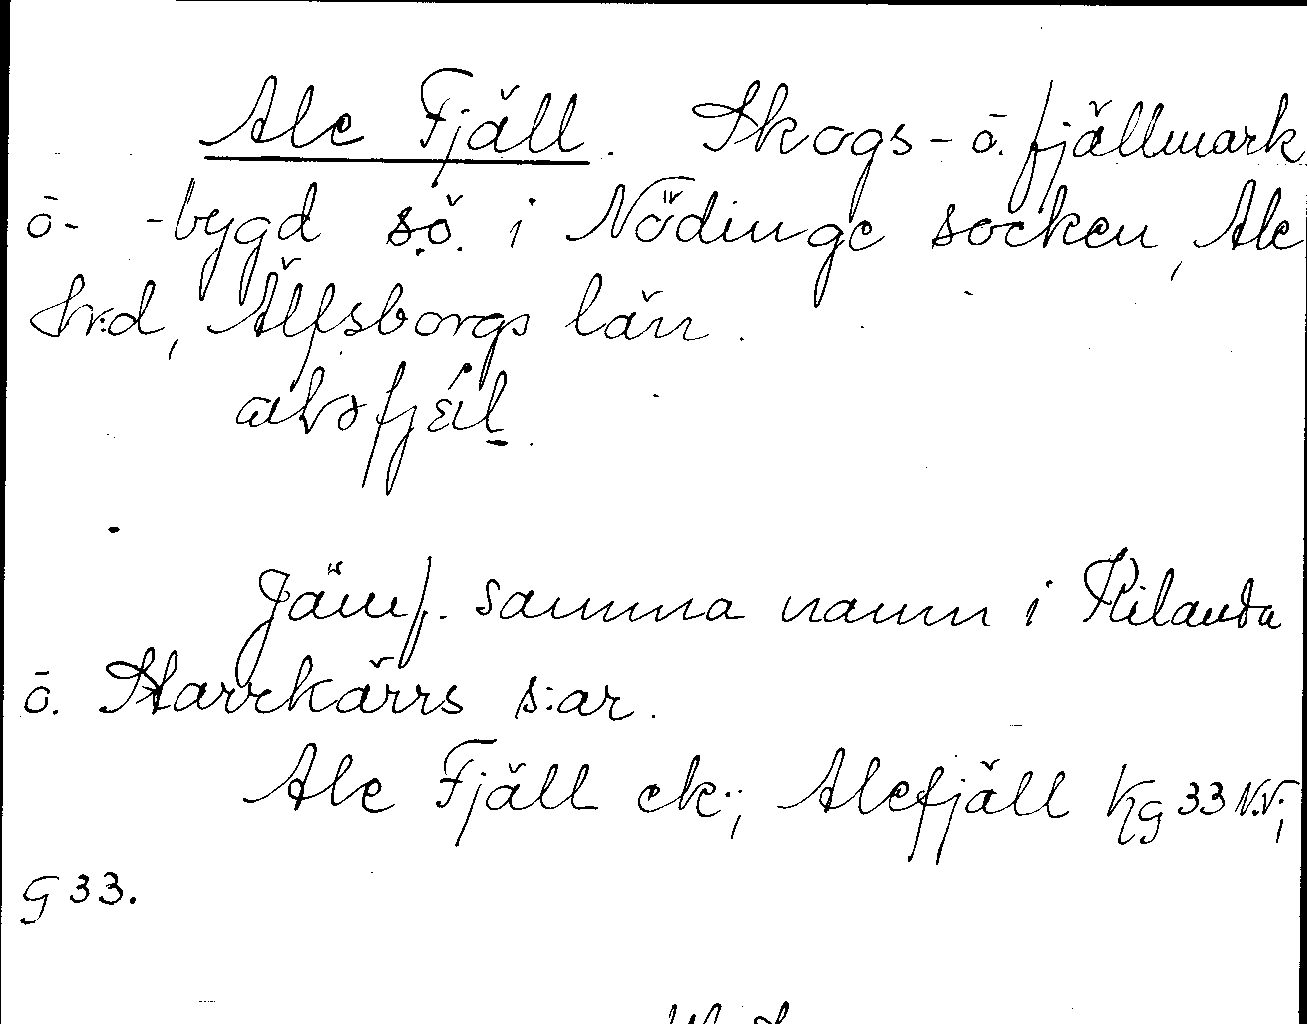 Ale Fjäll. Skogs- ō. fjällmark
ō- -bygd s.ö. i Nödinge socken, Ale
hrd, Älfsborgs län.
Jämf. samma namn i Kilanda
ō. Starrkärrs s:ar.
Ale Fjäll ek.; Alefjäll Kg 33 N.V.;
G 33.